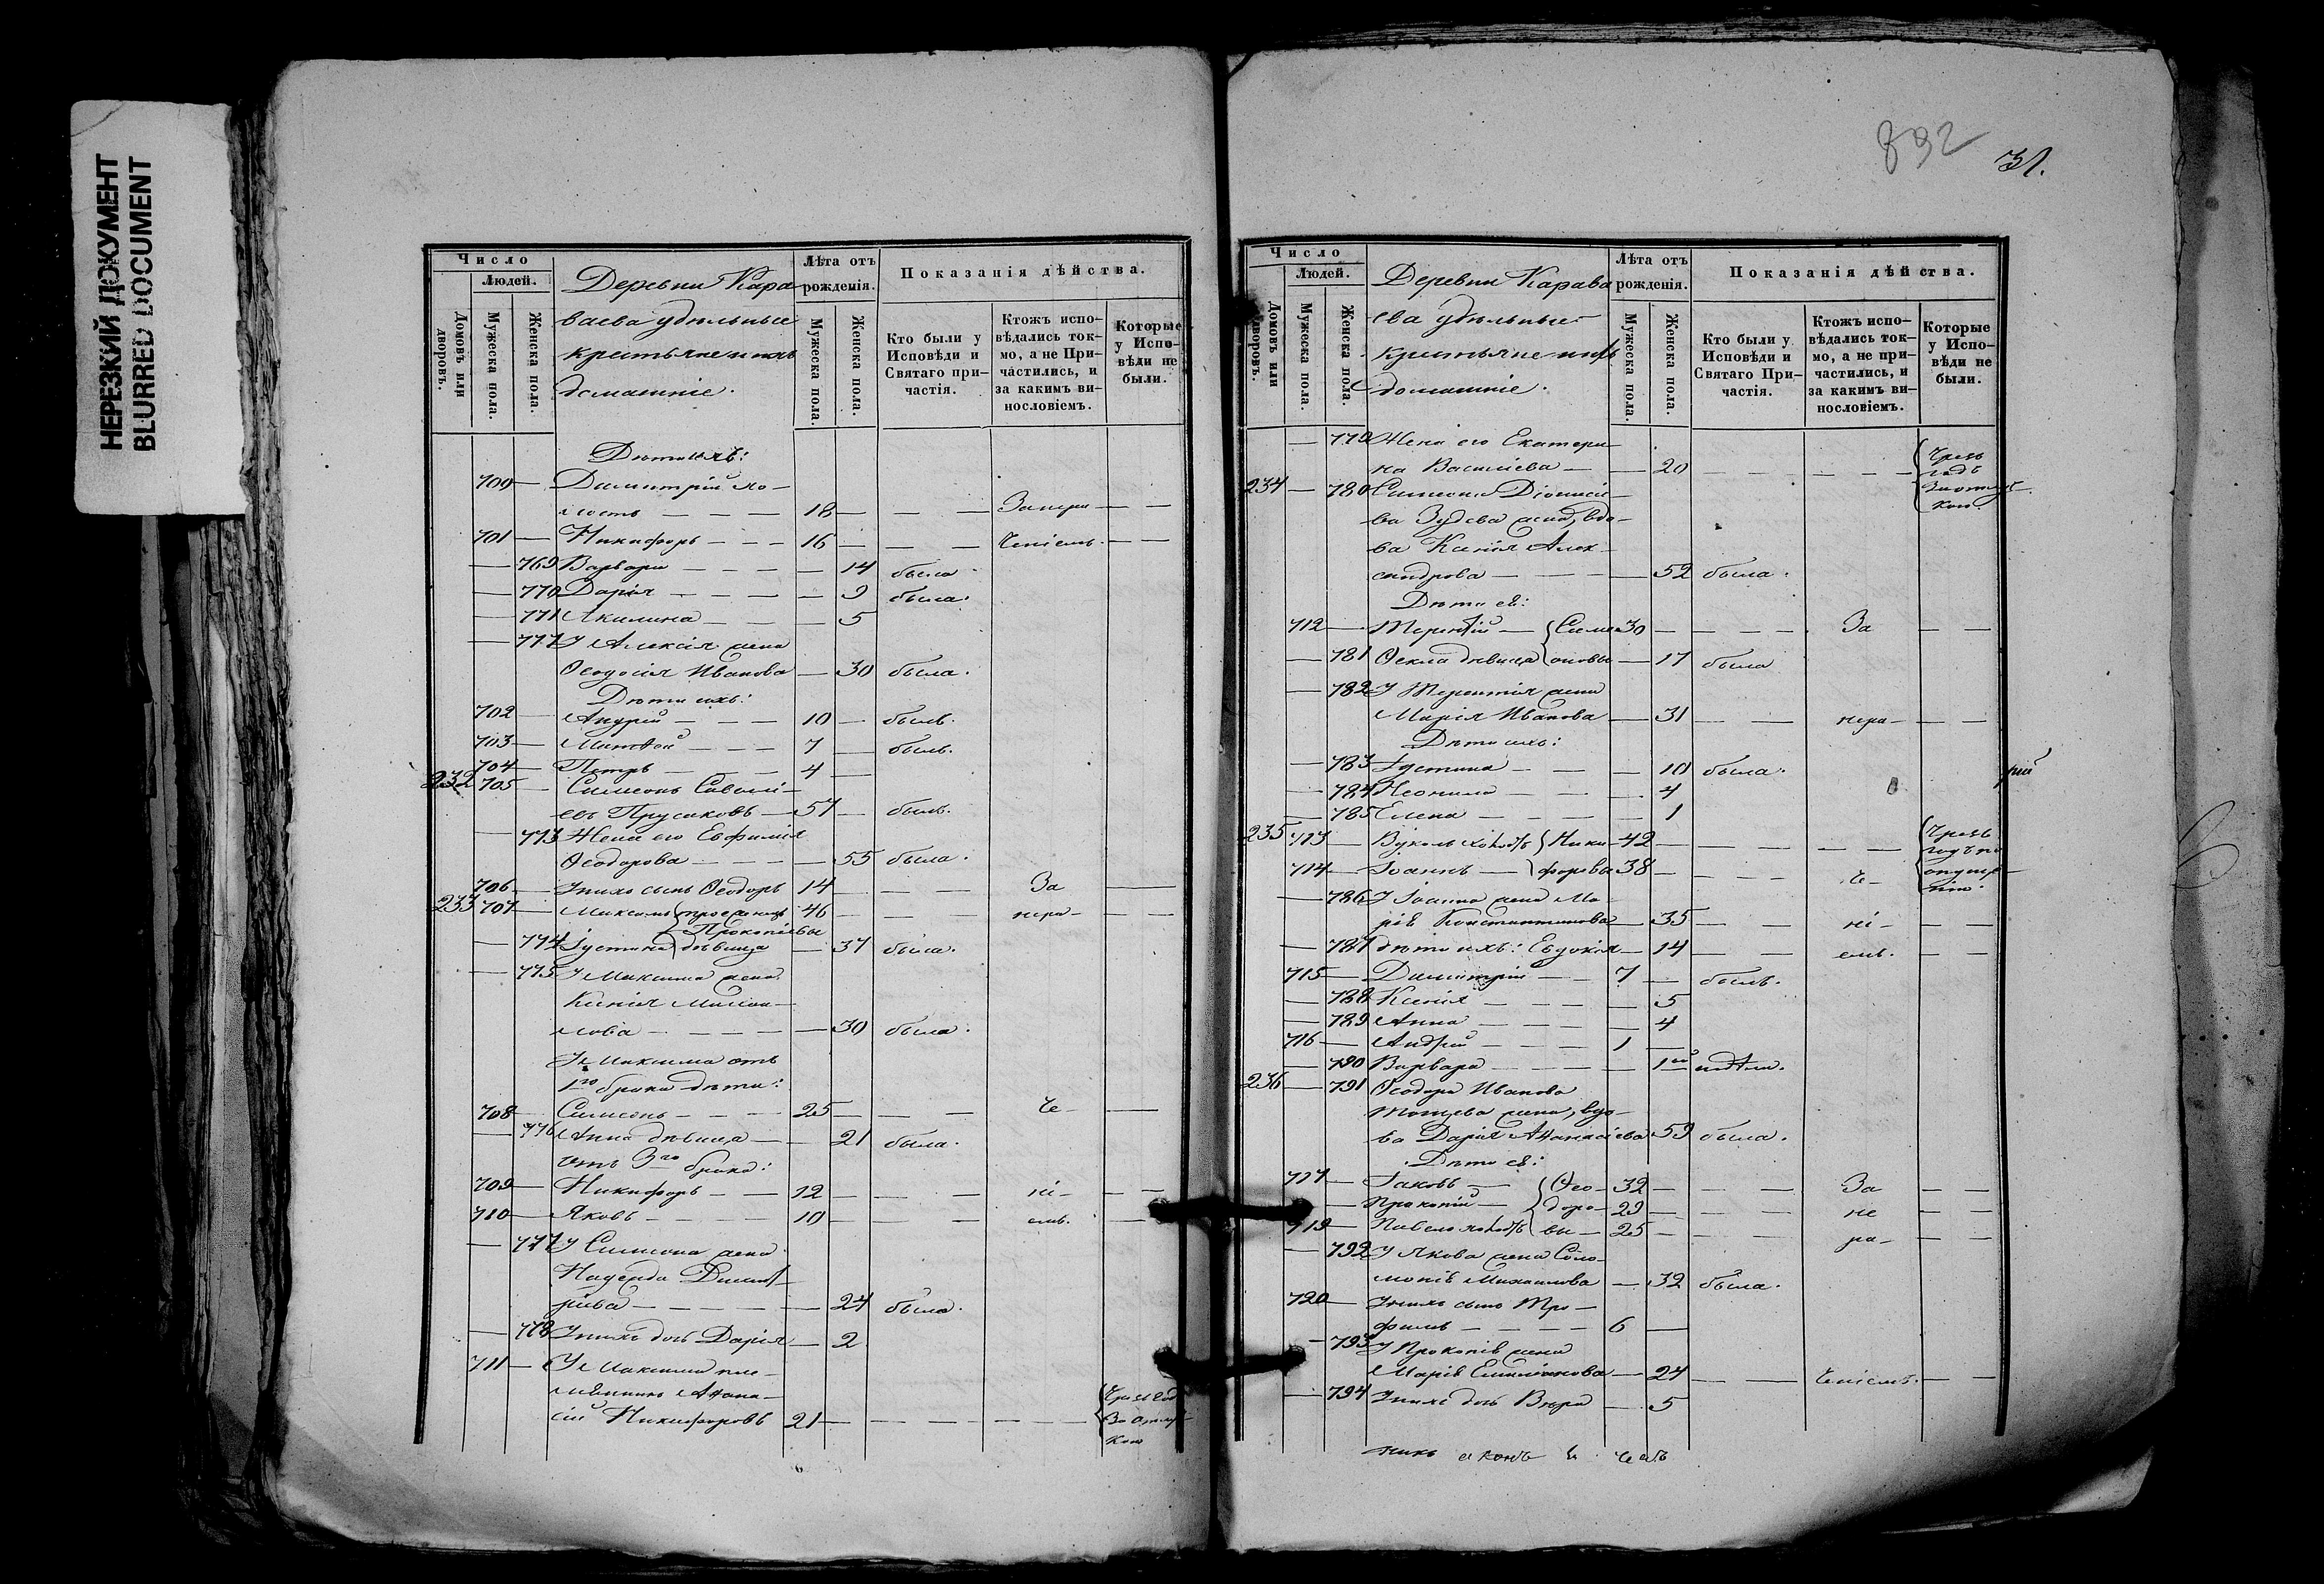 НЕРЕЗКИЙ ДОКУМЕНТ
BLURRED DOCUMENT
Число
Людей.
Домовъ или дворовъ.
Мужеска пола.
Женска пола.
Деревни Кара
ваева удѣльные
крестьяне и ихъ
домашніе.
Лѣта отъ рожденія.
Мужеска пола.
Женска пола.
Показанія дѣйства.
Кто были у Исповѣди и Святаго причастія.
Ктожъ исповѣдались токмо, а не Причастились, и за какимъ винословіемъ.
Которые у Исповѣди не были.
Дѣти ихъ:
709 — Димитрій хо-
лостъ — — — 18 — — — Занера — —
701 — Никифоръ — — — 16 — — — ченіемъ. — —
— 769 Варвара — — — — 14 была.
— 770 Дарія — — — — 9 была.
— 771 Акилина — — — 5
— 777 У Алексія жена
Ѳеодосія Иванова — 30 была.
Дѣти ихъ:
702 — Андрей — — — 10 — былъ.
703 — Матѳей — — — 7 — былъ.
704 — Петръ — — — 4 —
232 705 — Симеонъ Савель-
евъ Прусаковъ — 57 — былъ.
— 773 Жена его Евфимія
Ѳеодорова — — — — 55 была.
706 — У нихъ сынъ Ѳеодоръ 14 — — — За —
233 707 — Максимъ 46 — — — нера- — —
Прокопіевы
— 774 Іустина дѣвица — 37 была.
— 775 У Максима жена
Ксенія Михаи-
лова — — — — — 30 была.
У Максима отъ
1го брака дѣти:
708 — Симеонъ — — — 25 — — — че- —
— 776 Анна дѣвица — — 21 была.
отъ 3го брака:
709 — Никифоръ — — 12 — — — ні- — —
710 — Яковъ — — — — 10 — — — емъ. —
— 777 У Симеона жена
Надежда Димит-
ріева — — — — — 24 была.
— 778 У нихъ дочь Дарія — 2
711 — У Максима пле-
мянникъ Аѳана-
сій Никифоровъ 21 — — — — — Чрезъ год За отлуч- кою
892
31.
Число
Людей.
Домовъ или дворовъ.
Мужеска пола.
Женска пола.
Деревни Карава
ева удѣльные
крестьяне и ихъ
домашніе.
Лѣта отъ рожденія.
Мужеска пола.
Женска пола.
Показанія дѣйства.
Кто были у Исповѣди и Святаго Причастія.
Ктожъ исповѣдались токмо, а не причастились, и за какимъ винословіемъ.
Которые у Исповѣди не были.
— 779 Жена его Екатери
на Василіева — — 20 — — — — — Чрезъ годъ За отлуч- кою.
234 — 780 Симеона Діонисіе-
ва Зудева жена, вдо-
ва Ксенія Алек-
сандрова — — — — 52 была.
Дѣти ея:
712 — Терентій — Симе 30 — — — — За — —
— 781 Ѳекла дѣвица оновы — 17 была
— 782 У Терентія жена
Марія Иванова — 31 — — нера- — —
Дѣти ихъ:
— 783 Іустина — — — 10 была.
— 784 Неонила — — — 4
— 785 Елена — — — — 1
235 713 — Вуколъ холостъ Ники- 42 — — — — — Чрезъ годъ по
714 — Іоаннъ — форовы 38 — — — — че-
— 786 У Іоанна жена Ма-
рія Константинова — 35 — — ні- — —
— 787 дѣти ихъ: Евдокія — 14 — — емъ. — —
715 — Димитрій — — 7 — былъ.
— 788 Ксенія — — — — 5
— 789 Анна — — — — 4
716 — Андрей — — — 1 —
— 790 Варвара — — — — 1ой недѣли.
236 — 791 Ѳеодора Иванова
жена, вдо-
ва Дарія Аѳанасіева 53 была.
Дѣти ея:
717 — Іаковъ — Ѳео- 32 — — — За — —
— Прокопій — доро- 29 — — — не — —
719 — Павелъ холостъ вы — 25 — — — ра- — —
— 792 У Якова жена Соло-
монія Михаилова — 32 была.
720 — У нихъ сынъ Тро-
фимъ — — — — 6 —
— 793 У Прокопія жена
Марія Емиліанова — 24 — — ченіемъ. — —
— 794 У нихъ дочь Вѣра — 5